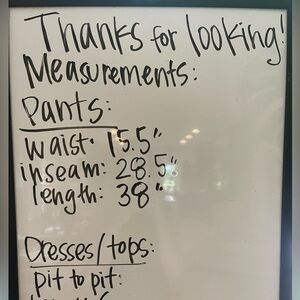 Thanks for looking!
Measurements:
Pants:
waist: 15.5"
inseam: 28.5"
length: 38"
Dresses/tops:
pit to pit: